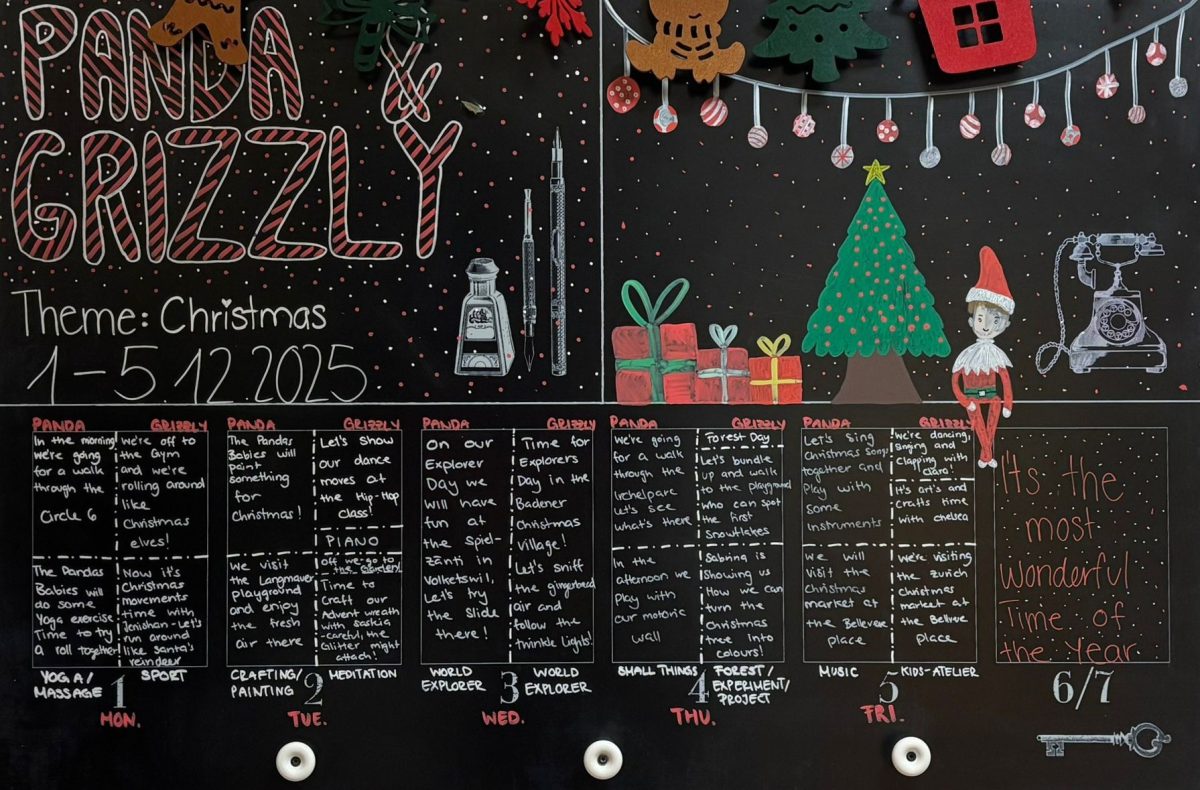 PANDA &
GRIZZLY
Theme: Christmas
1-5.12.2025
PANDA
In the morning
we're going
for a walk
through the
Circle 6
The Pandas
Babies will
do some
Yoga exercise
Time to try
A roll together
YOGA/
MASSAGE
GRIZZLY
we're off to
the Gym
and we're
rolling around
like
Christmas
elves!
Now it's
Christmas
movements
time with
Jenishan-Let's
run around
like Santa's
reindeer
SPORT
1
MON.
PANDA
The Pandas
Babies will
paint
something
for
Christmas!
we visit
the Langmauer
playground
and enjoy
the fresh
air there
CRAFTING/
PAINTING
GRIZZLY
Let's show
our dance
moves at
the Hip-Hop
class!
PIANO
off we go to
the Gockerli
Time to
Craft our
Advent wreath
with saskia
-careful, the
Glitter might
attach!
MEDITATION
2
TUE.
PANDA
On our
Explorer
Day we
will have
fun at
the spiel-
zänti in
Volketswil,
Let's try
the slide
there!
WORLD
EXPLORER
GRIZZLY
Time for
Explorers
Day in the
Badener
Christmas
Village!
Let's sniff
the gingerbread
air and
follow the
twinkle Lights!
WORLD
EXPLORER
3
WED.
PANDA
we're going
for a walk
through the
Irchelpark
Let's see
what's there
In the
afternoon we
Play with
our motoric
wall
SMALL THINGS
GRIZZLY
Forest Day
Let's bundle
up and walk
to the playground
who can spot
the first
snowflakes
Sabring is
Showing us
How we can
turn the
Christmas
tree into
colours!
FOREST/
EXPERIMENT/
PROJECT
4
THU.
PANDA
Let's Sing
Christmas Songs
together and
Play with
some
instruments
we will
visit the
Christmas
market at
the Bellevue
place
MUSIC
GRIZZLY
we're dancing,
singing and
Clapping with
Clara!
It's art's and
crafts time
with chelsea
we're visiting
the zurich
Christmas
market at
the Bellvue
place
KIDS-ATELIER
5
FRI.
It's the
most
wonderful
Time of
the Year
6/7